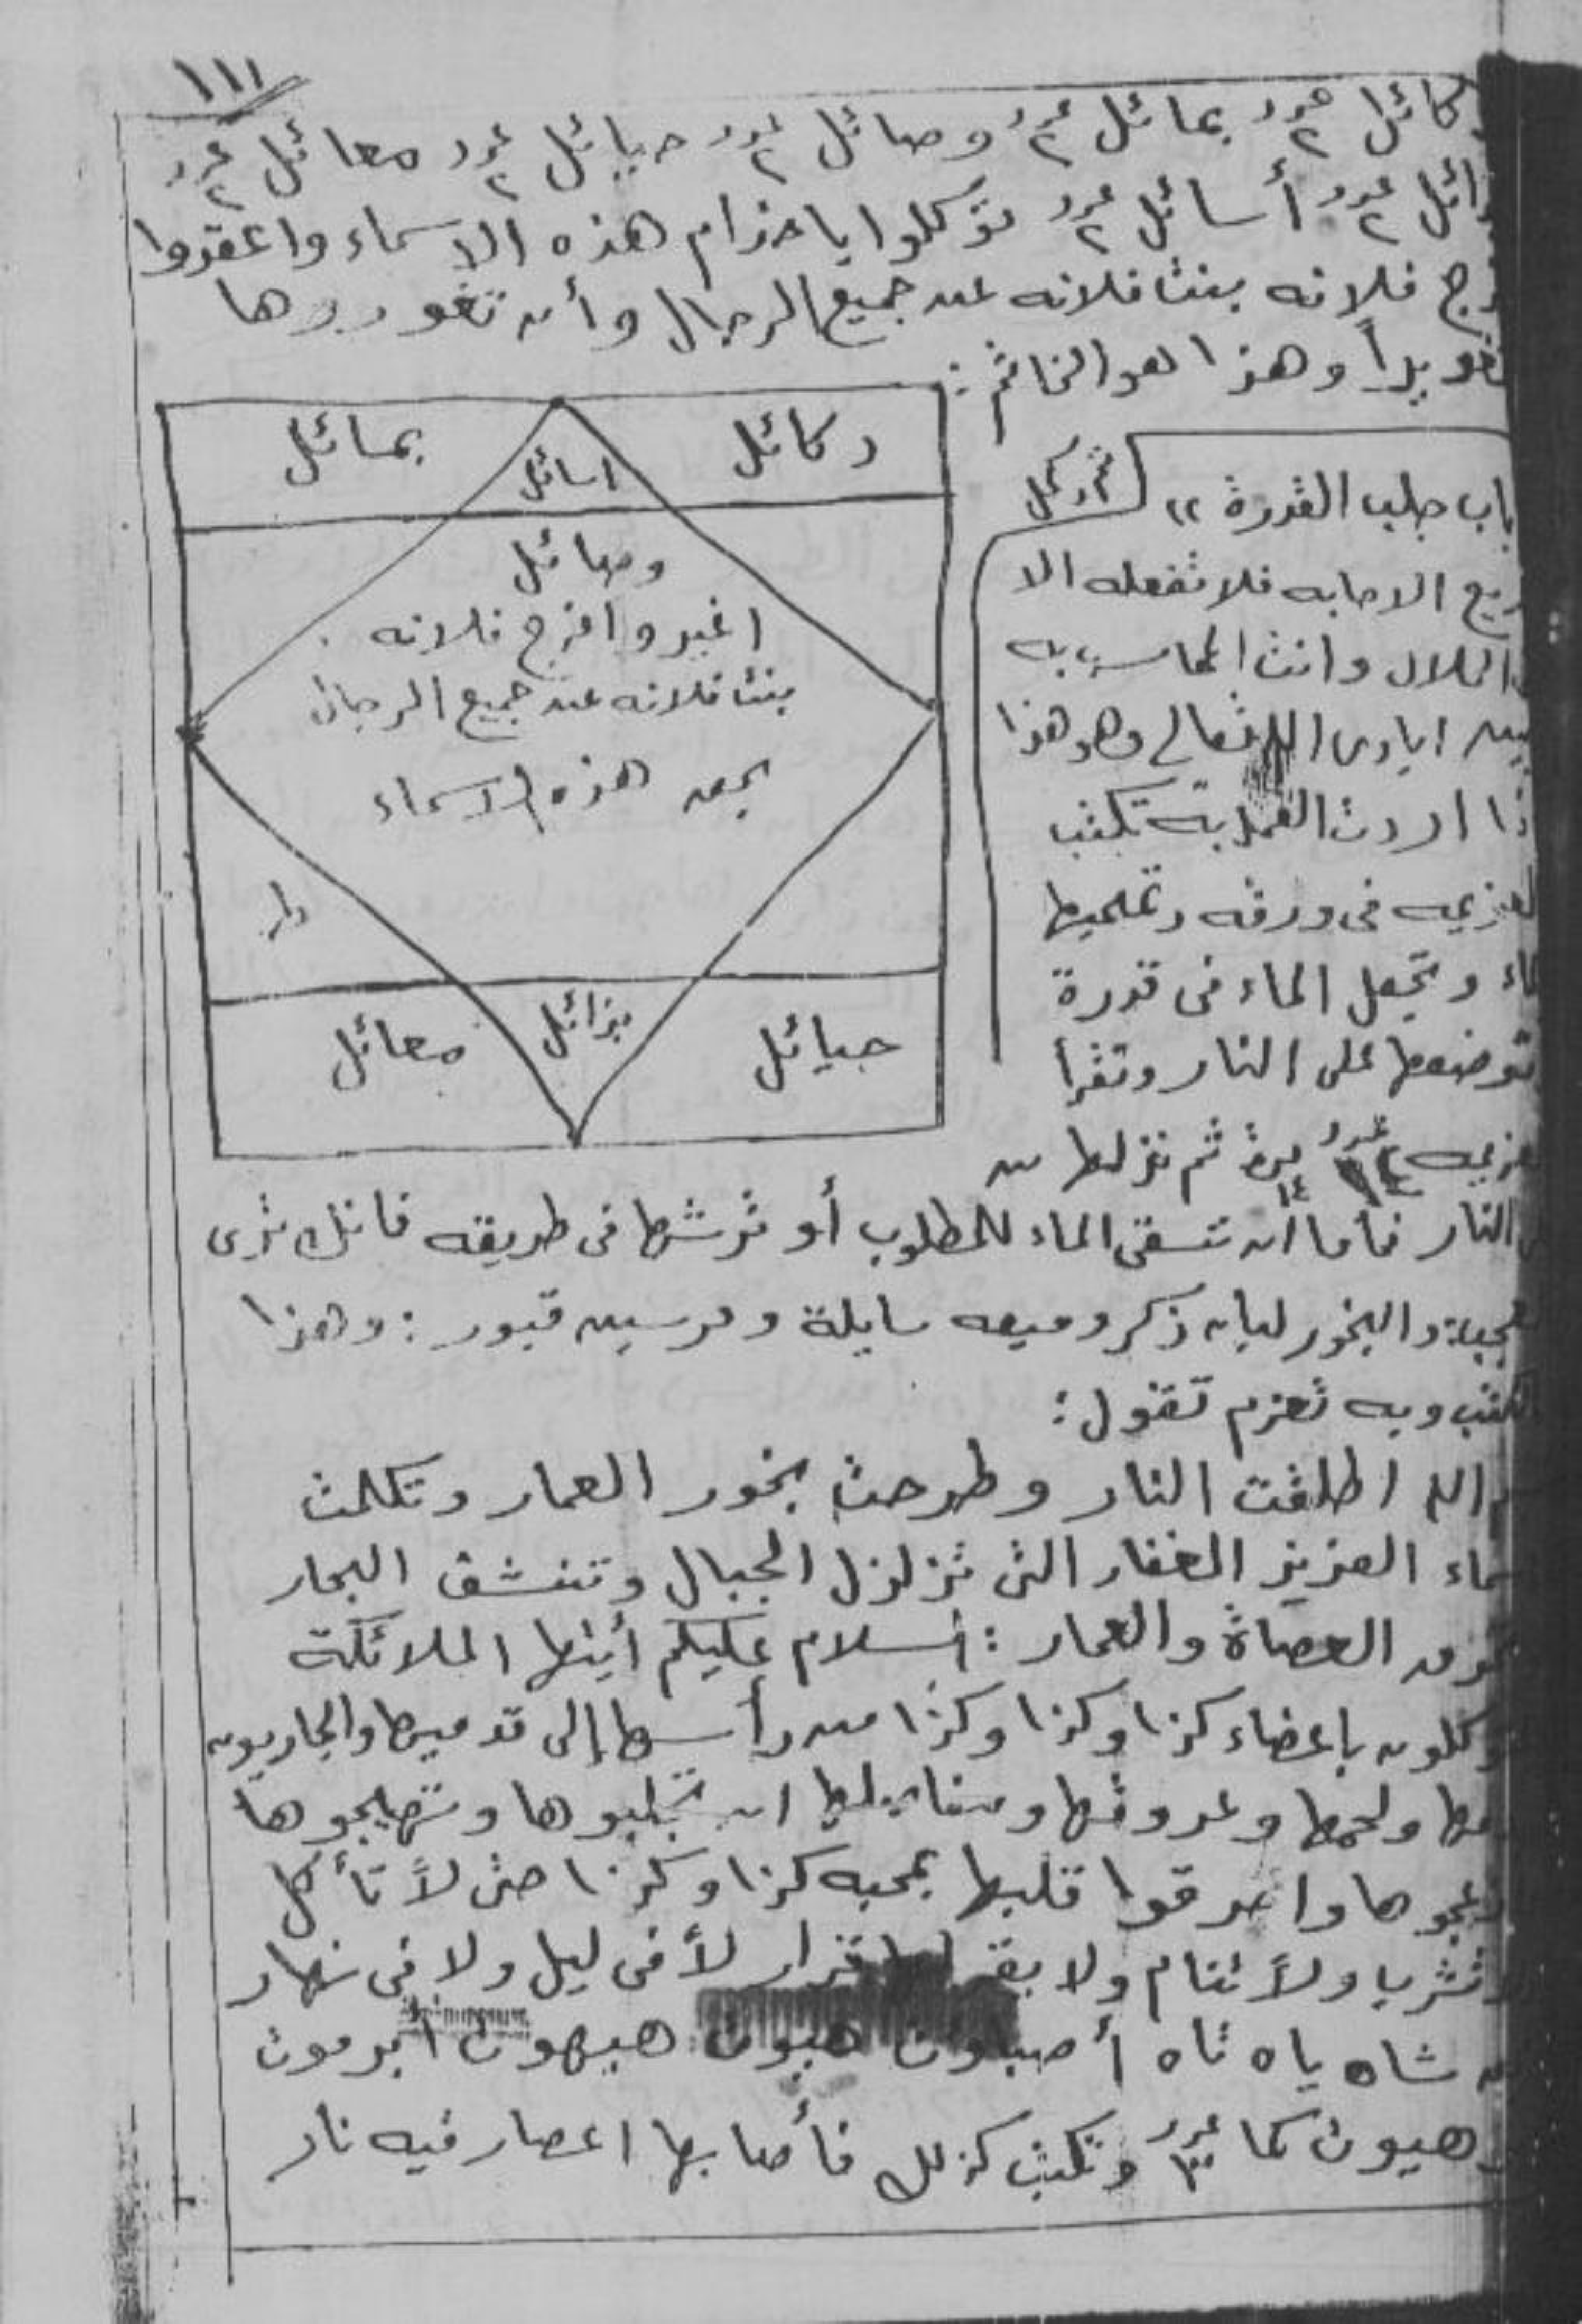 ١١١
كائل عدد ٢ بمائل عدد ٢ وصائل عدد ٢ حيائل عدد ٢ معائل عدد ٢
ائل عدد ٢ أسائل عدد ٢ توكلوا يا خدام هذه الاسماء واعقدوا
رج فلانه بنت فلانه عن جميع الرجال وأن تغوروها
تغويراً وهذا هو الخاتم :
دكائل
اسائل
بمائل
وصائل
اغير وافرج فلانه
بنت فلانه عن جميع الرجال
بحق هذه الاسماء
ط
حيائل
بزائل
معائل
باب جلب القدرة ،،
ريع الاجابه فلا تفعله الا
الحلال وانت المحاسب به
بين ايادى الله تعالى وهو هذا
ذا اردت العمل به تكتب
العزيمه فى ورقه وتمحيها
ماء وتجعل الماء فى قدرة
توضعها على النار وتقرأ
عزيمه عدد ١٤ مرة ثم تنزلها من
النار فأما ان تسقى الماء للمطلوب أو ترشها فى طريقه فانك ترى
والبخور لبان ذكر وميعه سايلة ومرسين قبور : وهذا
تكتب وبه تعزم تقول :
الله اطلقت النار وطرحت بخور العمار وتكلمت
ماء العزيز الغفار التى تزلزل الجبال وتنشف البحار
تحرق العصاة والعمار : السلام عليكم أيتها الملائكة
وكلون باعضاء كذا وكذا وكذا من رأسها إلى قدميها والجاريون
مها ولحمها وعروقها ومفاصلها ان تجلبوها وتهيجوها
عجوها واحرقوا قلبها بمحبه كذا وكذا حتى لا تأكل
تشرب ولا تنام ولا يقر لها قرار لا فى ليل ولا فى نهار
شاه ياه تاه أصباوت هيوت هيهوت ابرموت
هيوت كما عدد ٣ وتكتب كذلك فأصابها اعصار فيه نار